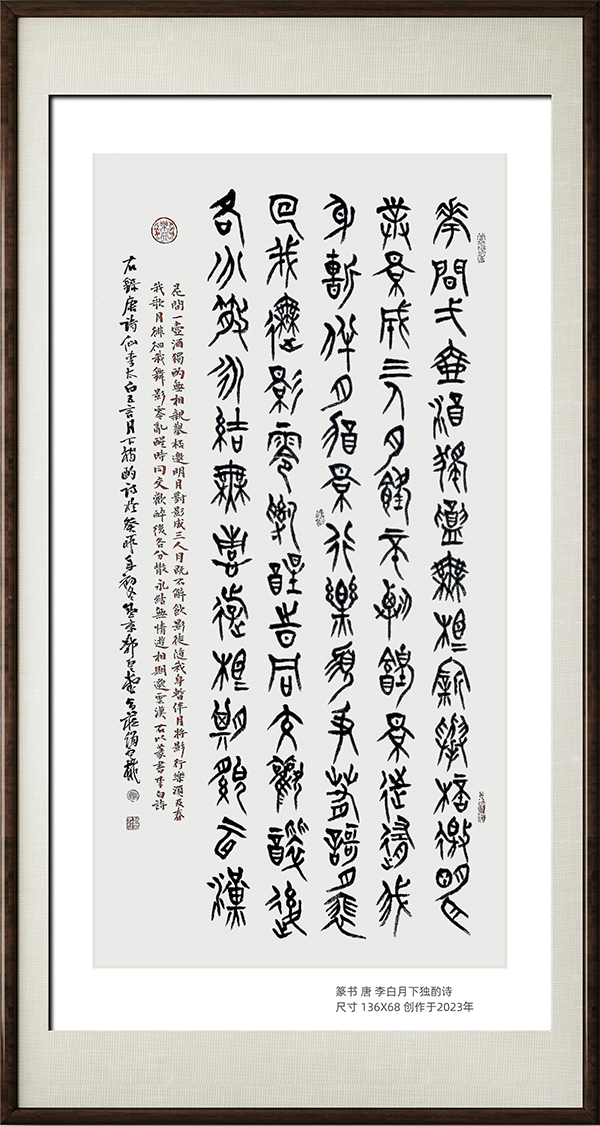 花間弌壺酒獨酌無相親舉杯邀明月
對景成三人月既不解飲景徒隨我
身暫伴月將景行樂須及春我歌月徘
回我舞影零亂醒時同交歡醉後
各分散永結無情遊相期邈雲漢
花間一壺酒獨酌無相親舉杯邀明月對影成三人月既不解飲影徒隨我身暫伴月將影行樂須及春
我歌月徘徊我舞影零亂醒時同交歡醉後各分散永結無情遊相期邈雲漢 右以篆書李白詩
右錄唐詩仙李太白五言月下獨酌詩於癸卯年初冬於京郊
篆书 唐 李白月下独酌诗
尺寸 136X68 创作于2023年